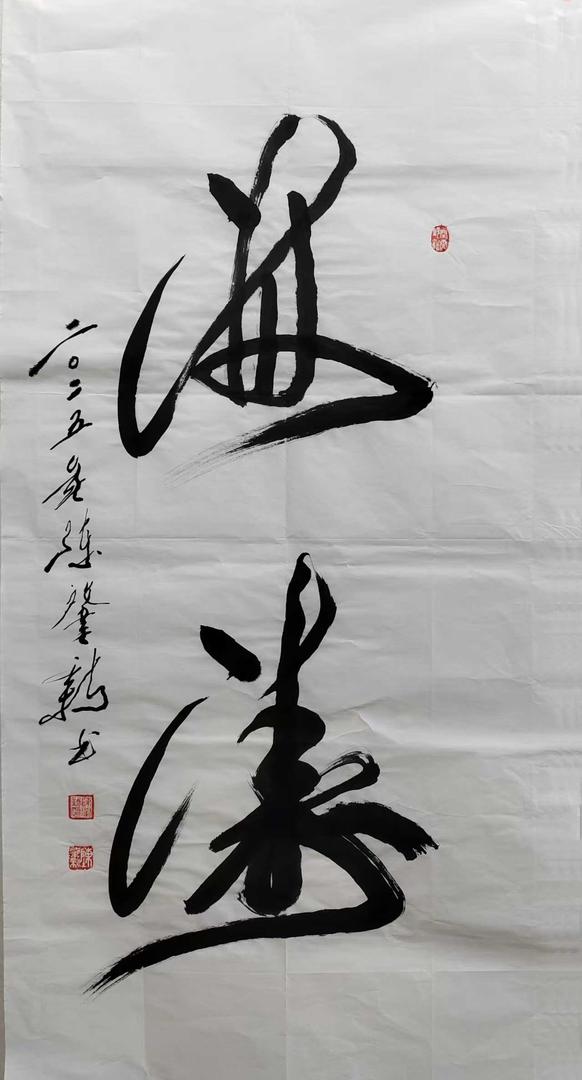 海涛
二〇二五年陈肇勋书